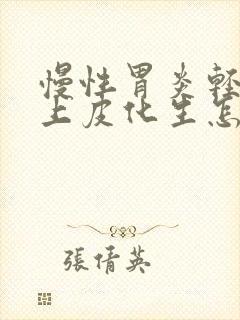 慢性胃炎輕
上皮化生怎
張倩英